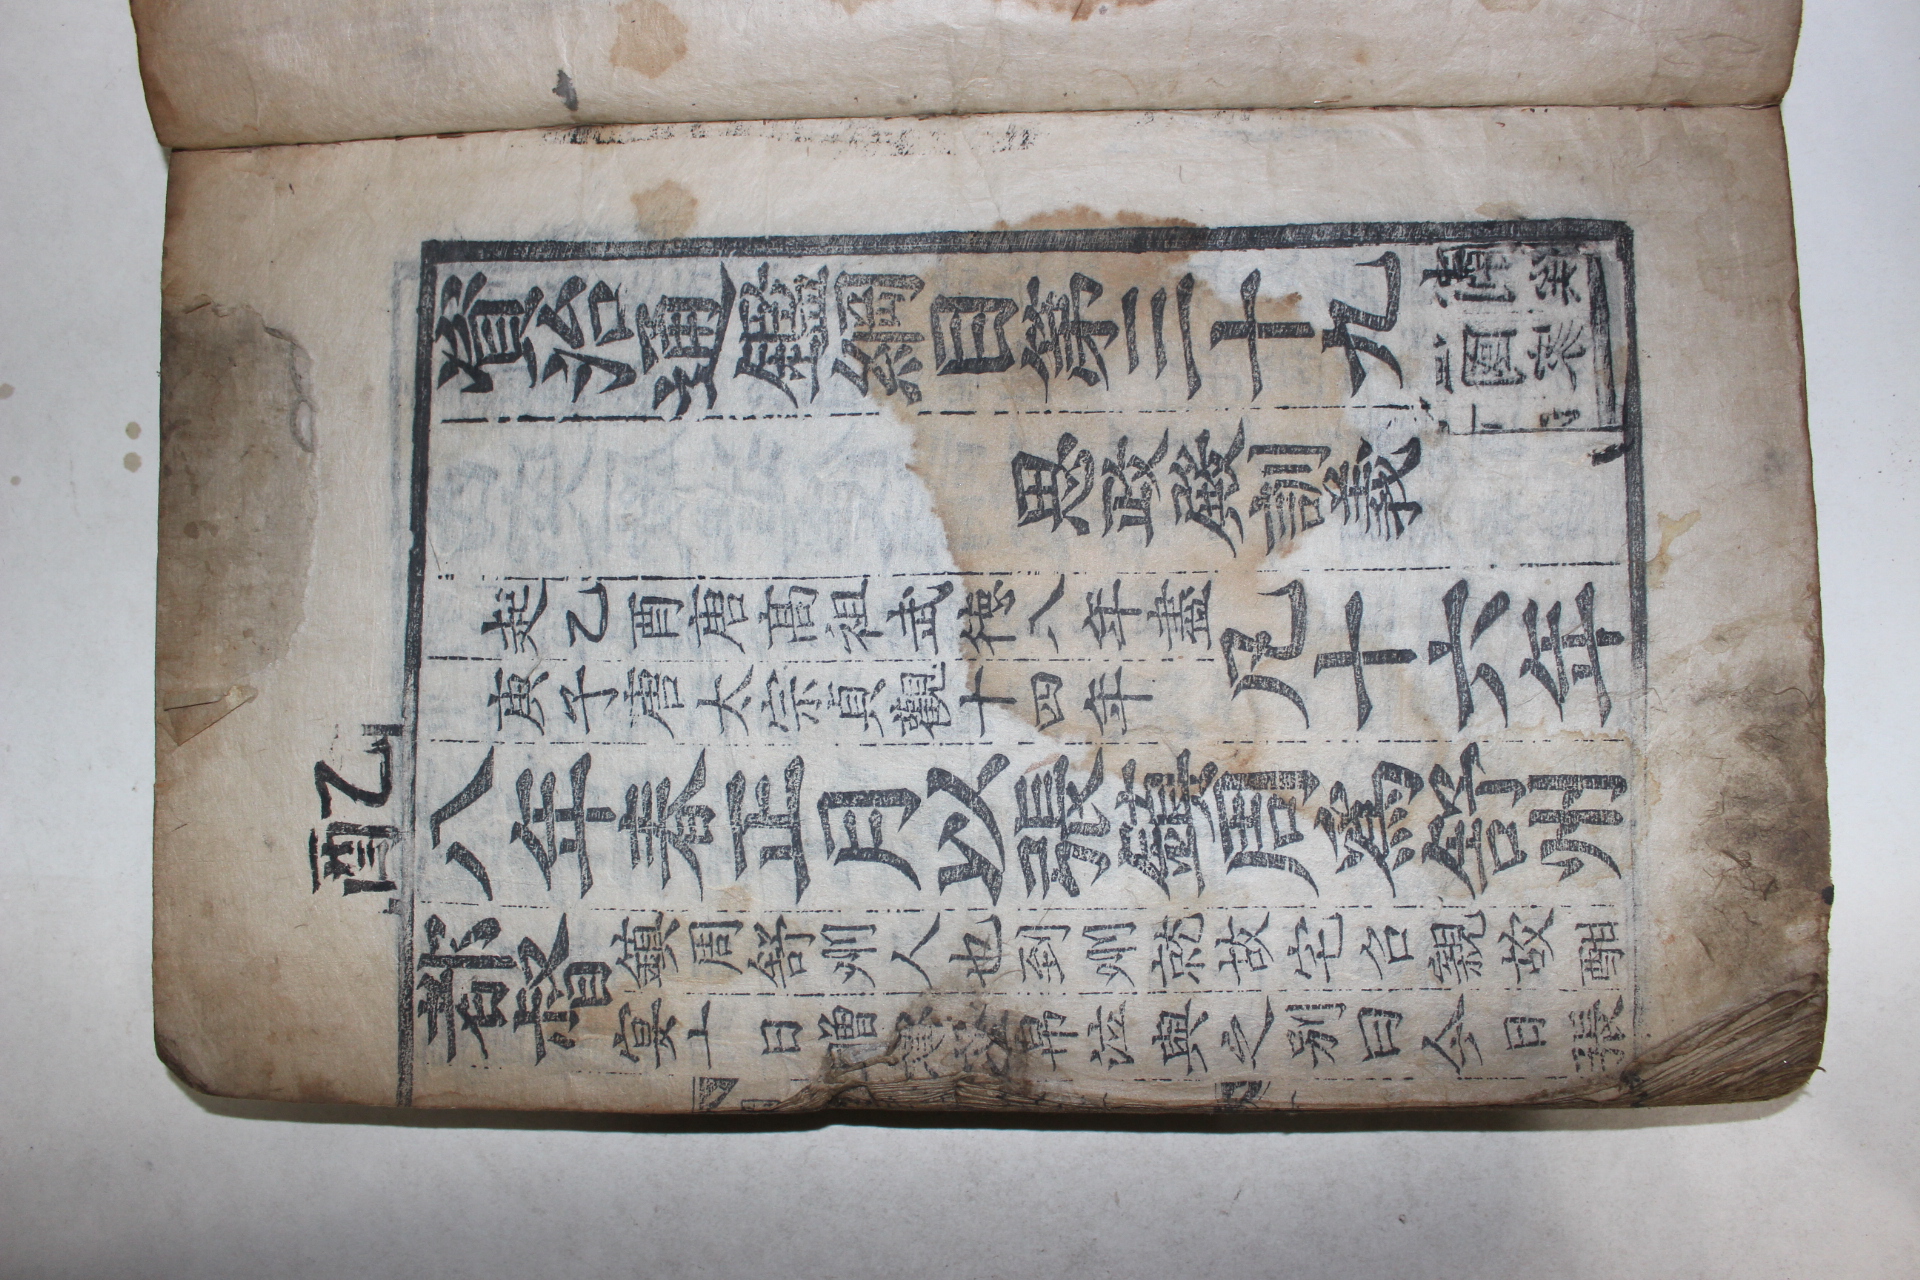 資治通鑑綱目第三十九
思政殿訓義
起乙酉唐高祖武德八年盡
庚子唐太宗貞觀十四年
凡十六年
乙酉
八年春正月以張鎮周爲舒州
都督
鎮周舒州人也到州就故宅召親故酣
宴十日贈
帛泣與之别曰今日張